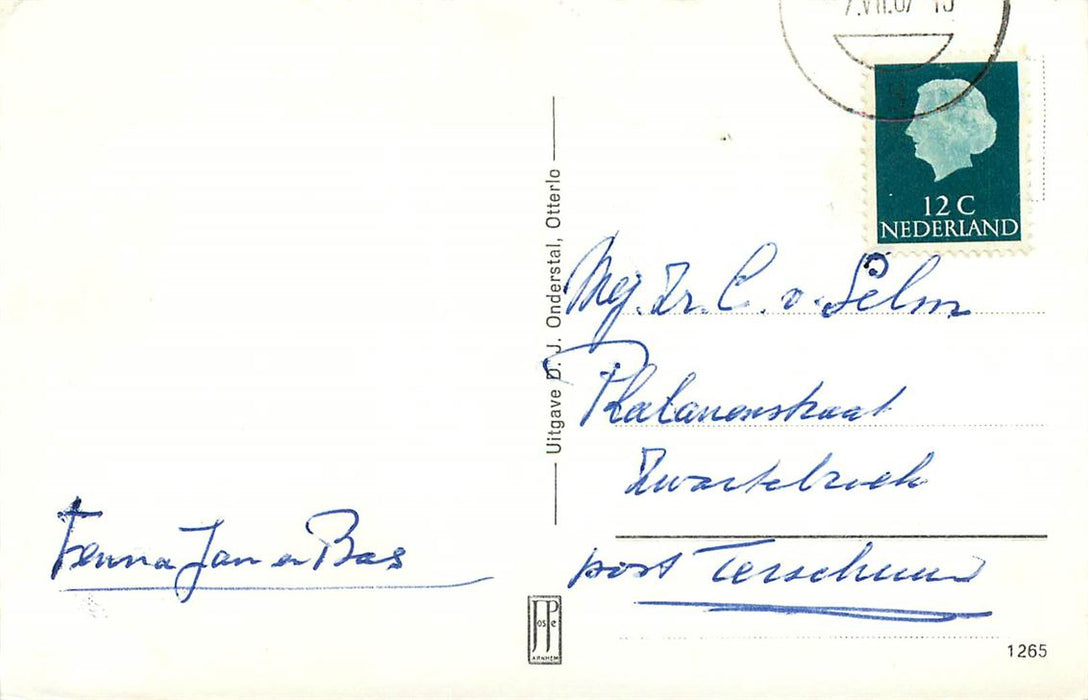 7.VII.67 15
12 C
NEDERLAND
Uitgave D. J. Onderstal, Otterlo
Mej. Zr. C. v. Selm
Zwartebroek
post Terschuur
Fenna Jan en Bas
JosPe
ARNHEM
1265